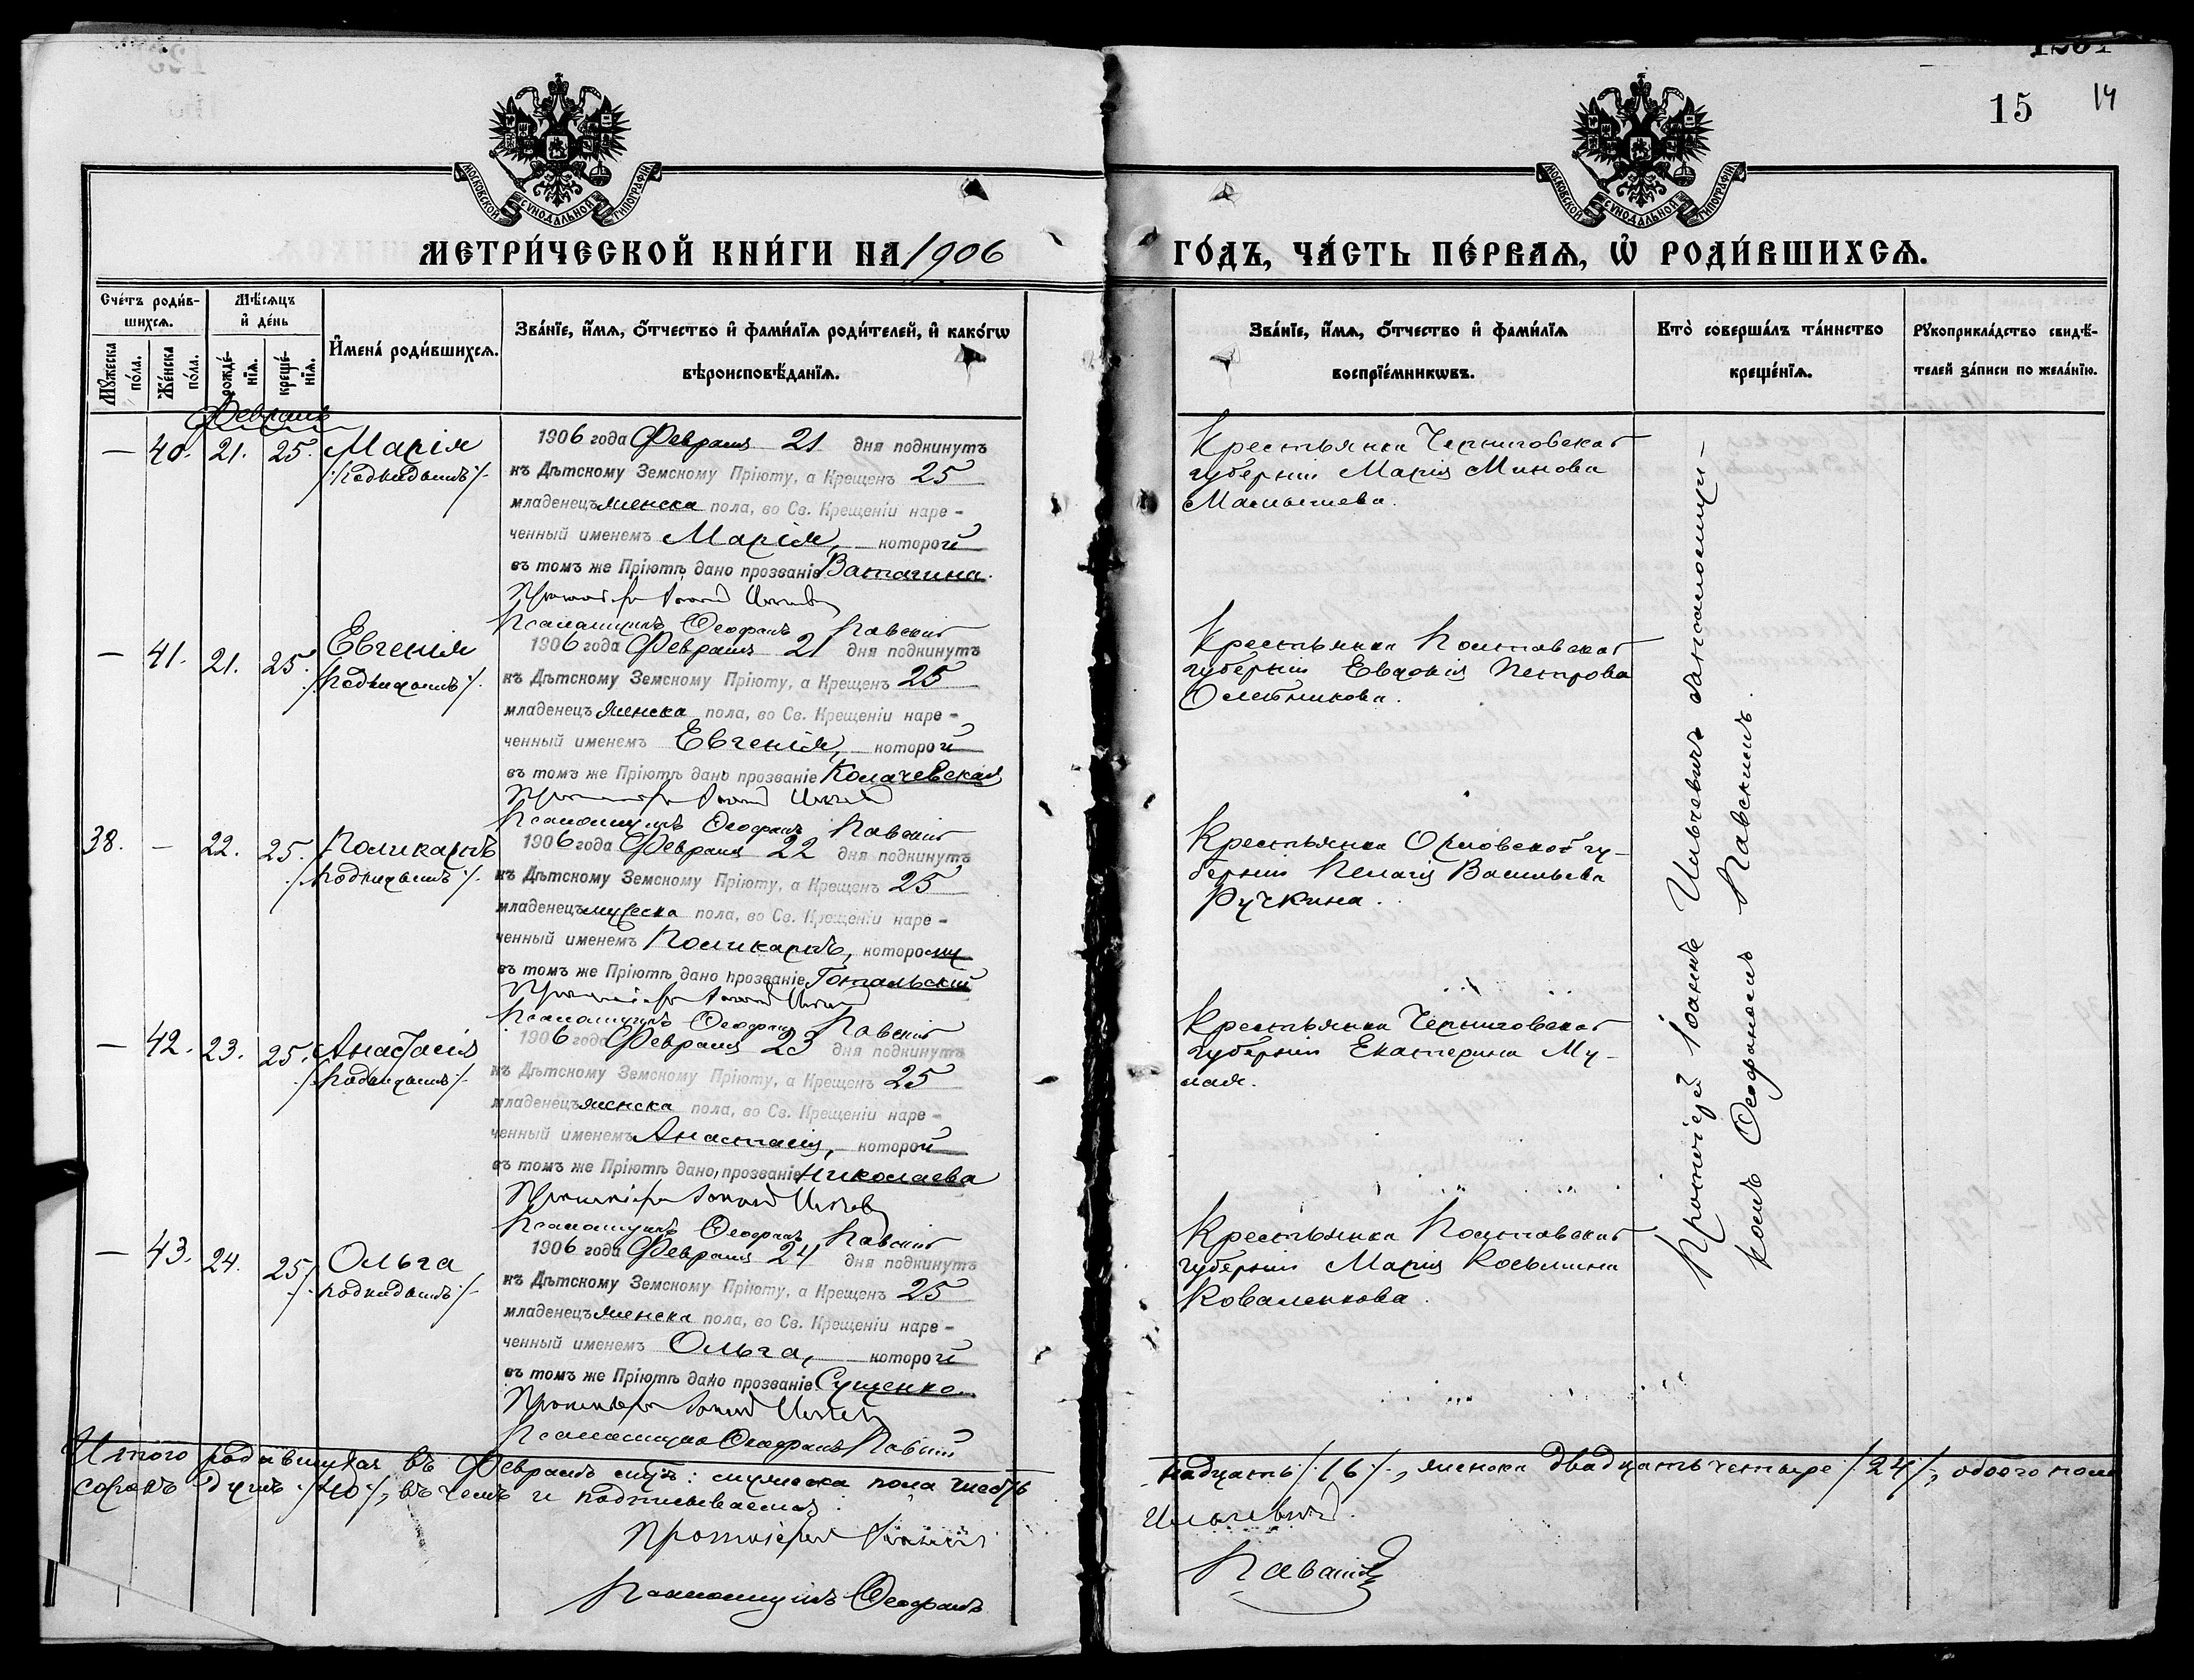 15
14
МОСКОВСКОЙ СѴНОДАЛЬНОЙ ТИПОГРАФІИ
МОСКОВСКОЙ СѴНОДАЛЬНОЙ ТИПОГРАФІИ
МЕТРИ́ЧЕСКОЙ КНИ́ГИ НА 1906
ГО́ДЪ, ЧА́СТЬ ПЕ́РВАЯ, Ѡ҆ РОДИ́ВШИХСЯ.
Сче́тъ роди́в-
шихся.
Мѣ́сяцъ
и҆ де́нь
Мꙋ́жеска по́ла.
Же́нска по́ла.
рожде́-
нїя.
креще́-
нїя.
И҆мена́ роди́вшихся.
Зва́нїе, и҆́мя, ѻ҆́тчество и҆ фами́лїя роди́телей, и҆ како́гѡ
вѣроисповѣ́данїя.
Зва́нїе, и҆́мя, ѻ҆́тчество и҆ фами́лїя
воспрїе́мникѡвъ.
Кто̀ соверша́лъ та́инство
креще́нїя.
Рꙋкоприкла́дство свидѣ́-
телей за́писи по жела́нїю.
Февраль
— 40. 21. 25. Марія
/:Подкидышъ:/
1906 года Февраля 21 дня подкинутъ
къ Дѣтскому Земскому Пріюту, а Крещенъ 25
младенецъ женска пола, во Св. Крещеніи наре-
ченный именемъ Марія, которой
въ томъ же Пріютѣ дано прозваніе Ватагина.
Псаломщикъ Ѳеофанъ Павскій
Крестьянка Черниговской
губерніи Марія Минова
Малышева.
— 41. 21. 25. Евгенія
/:Подкидышъ:/
1906 года Февраля 21 дня подкинутъ
къ Дѣтскому Земскому Пріюту, а Крещенъ 25
младенецъ женска пола, во Св. Крещеніи наре-
ченный именемъ Евгенія, которой
въ томъ же Пріютѣ дано прозваніе Колачевская
Псаломщикъ Ѳеофанъ Павскій
Крестьянка Полтавской
губерніи Евдокія Петрова
Олейникова.
38. — 22. 25. Поликарпъ
/:Подкидышъ:/
1906 года Февраля 22 дня подкинутъ
къ Дѣтскому Земскому Пріюту, а Крещенъ 25
младенецъ мужеска пола, во Св. Крещеніи наре-
ченный именемъ Поликарпъ, которому
въ томъ же Пріютѣ дано прозваніе Готальскій
Псаломщикъ Ѳеофанъ Павскій
Крестьянка Орловской гу-
берніи Пелагія Васильева
Ручкина.
— 42. 23. 25. Анастасія
/:Подкидышъ:/
1906 года Февраля 23 дня подкинутъ
къ Дѣтскому Земскому Пріюту, а Крещенъ 25
младенецъ женска пола, во Св. Крещеніи наре-
ченный именемъ Анастасія, которой
въ томъ же Пріютѣ дано прозваніе Николаева
Псаломщикъ Ѳеофанъ Павскій
Крестьянка Черниговской
губерніи Екатерина
— 43. 24. 25. Ольга
/:подкидышъ:/
1906 года Февраля 24 дня подкинутъ
къ Дѣтскому Земскому Пріюту, а Крещенъ 25
младенецъ женска пола, во Св. Крещеніи наре-
ченный именемъ Ольга, которой
въ томъ же Пріютѣ дано прозваніе Сущенко.
Псаломщикъ Ѳеофанъ Павскій
Крестьянка Полтавской
губерніи Марія Косьмина
Коваленкова.
Протоіерей Іоаннъ Ильичевичъ съ псаломщи-
комъ Ѳеофаномъ Павскимъ.
Итого родившихся въ Февралѣ мцѣ: мужеска пола шест-
надцать /:16:/, женска двадцать четыре /:24:/, обоего пола
сорокъ душъ /:40:/, въ чемъ и подписываемся:
Протоіерей Іоаннъ Ильичевичъ
Псаломщикъ Ѳеофанъ Павскій